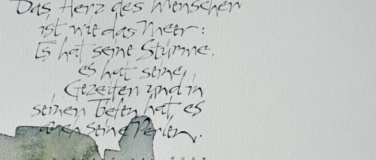 Das Herz des Menschen
ist wie das Meer:
Es hat seine Stürme,
es hat seine
Gezeiten und in
seinen Tiefen hat es
auch seine Perlen.